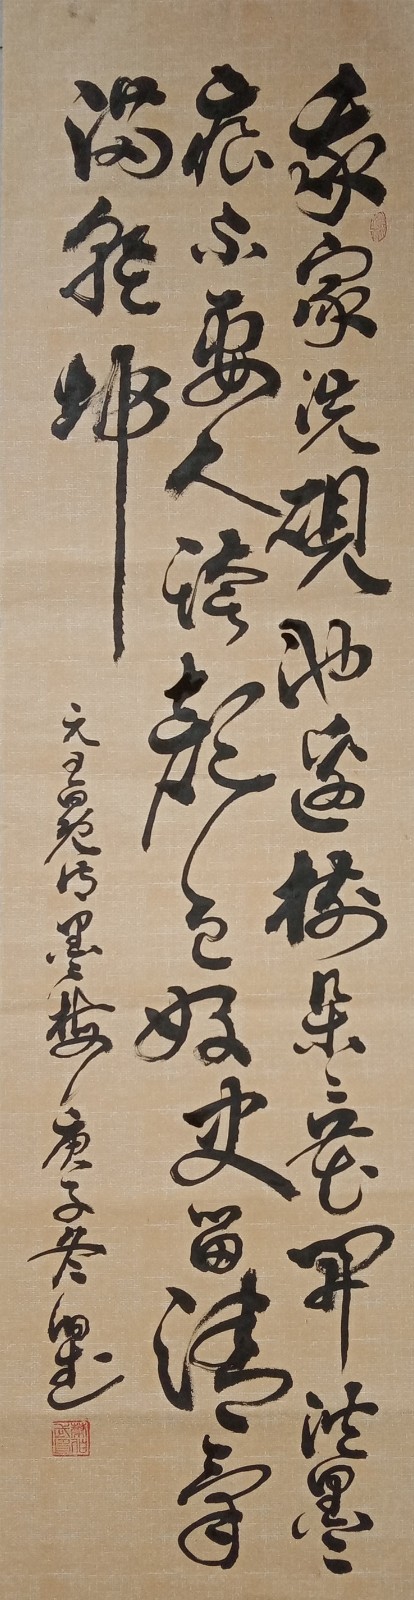 我家洗硯池邊樹朵朵花開淡墨
痕不要人誇顏色好留清氣
滿乾坤
元王冕詩墨梅庚子冬伯武